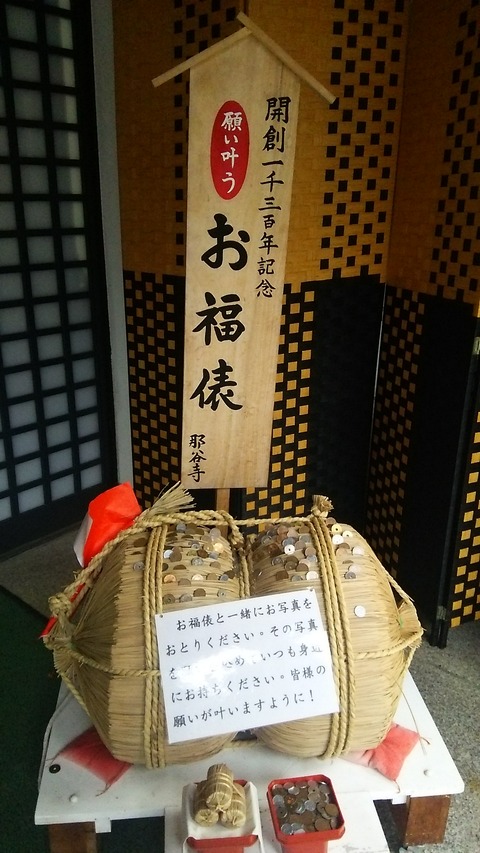 開創一千三百年記念
願い叶う
お福俵
那谷寺
お福俵と一緒にお写真を
おとりください。その写真
を めて、いつも身近
にお持ちください。皆様の
願いが叶いますように！